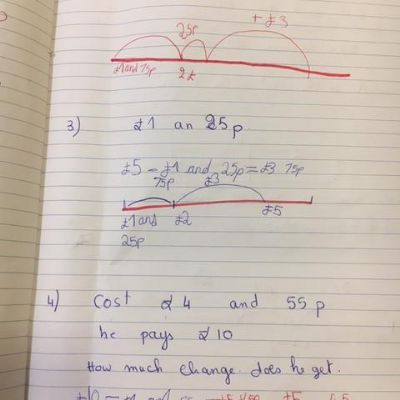 25p + £3
£1 and 75p 2£
3) £1 an 25p
£5 - £1 and 25p = £3 75p
75p £3
£1 and £2 £5
25p
4) Cost £4 and 55p
he pays £10
How much change does he get.